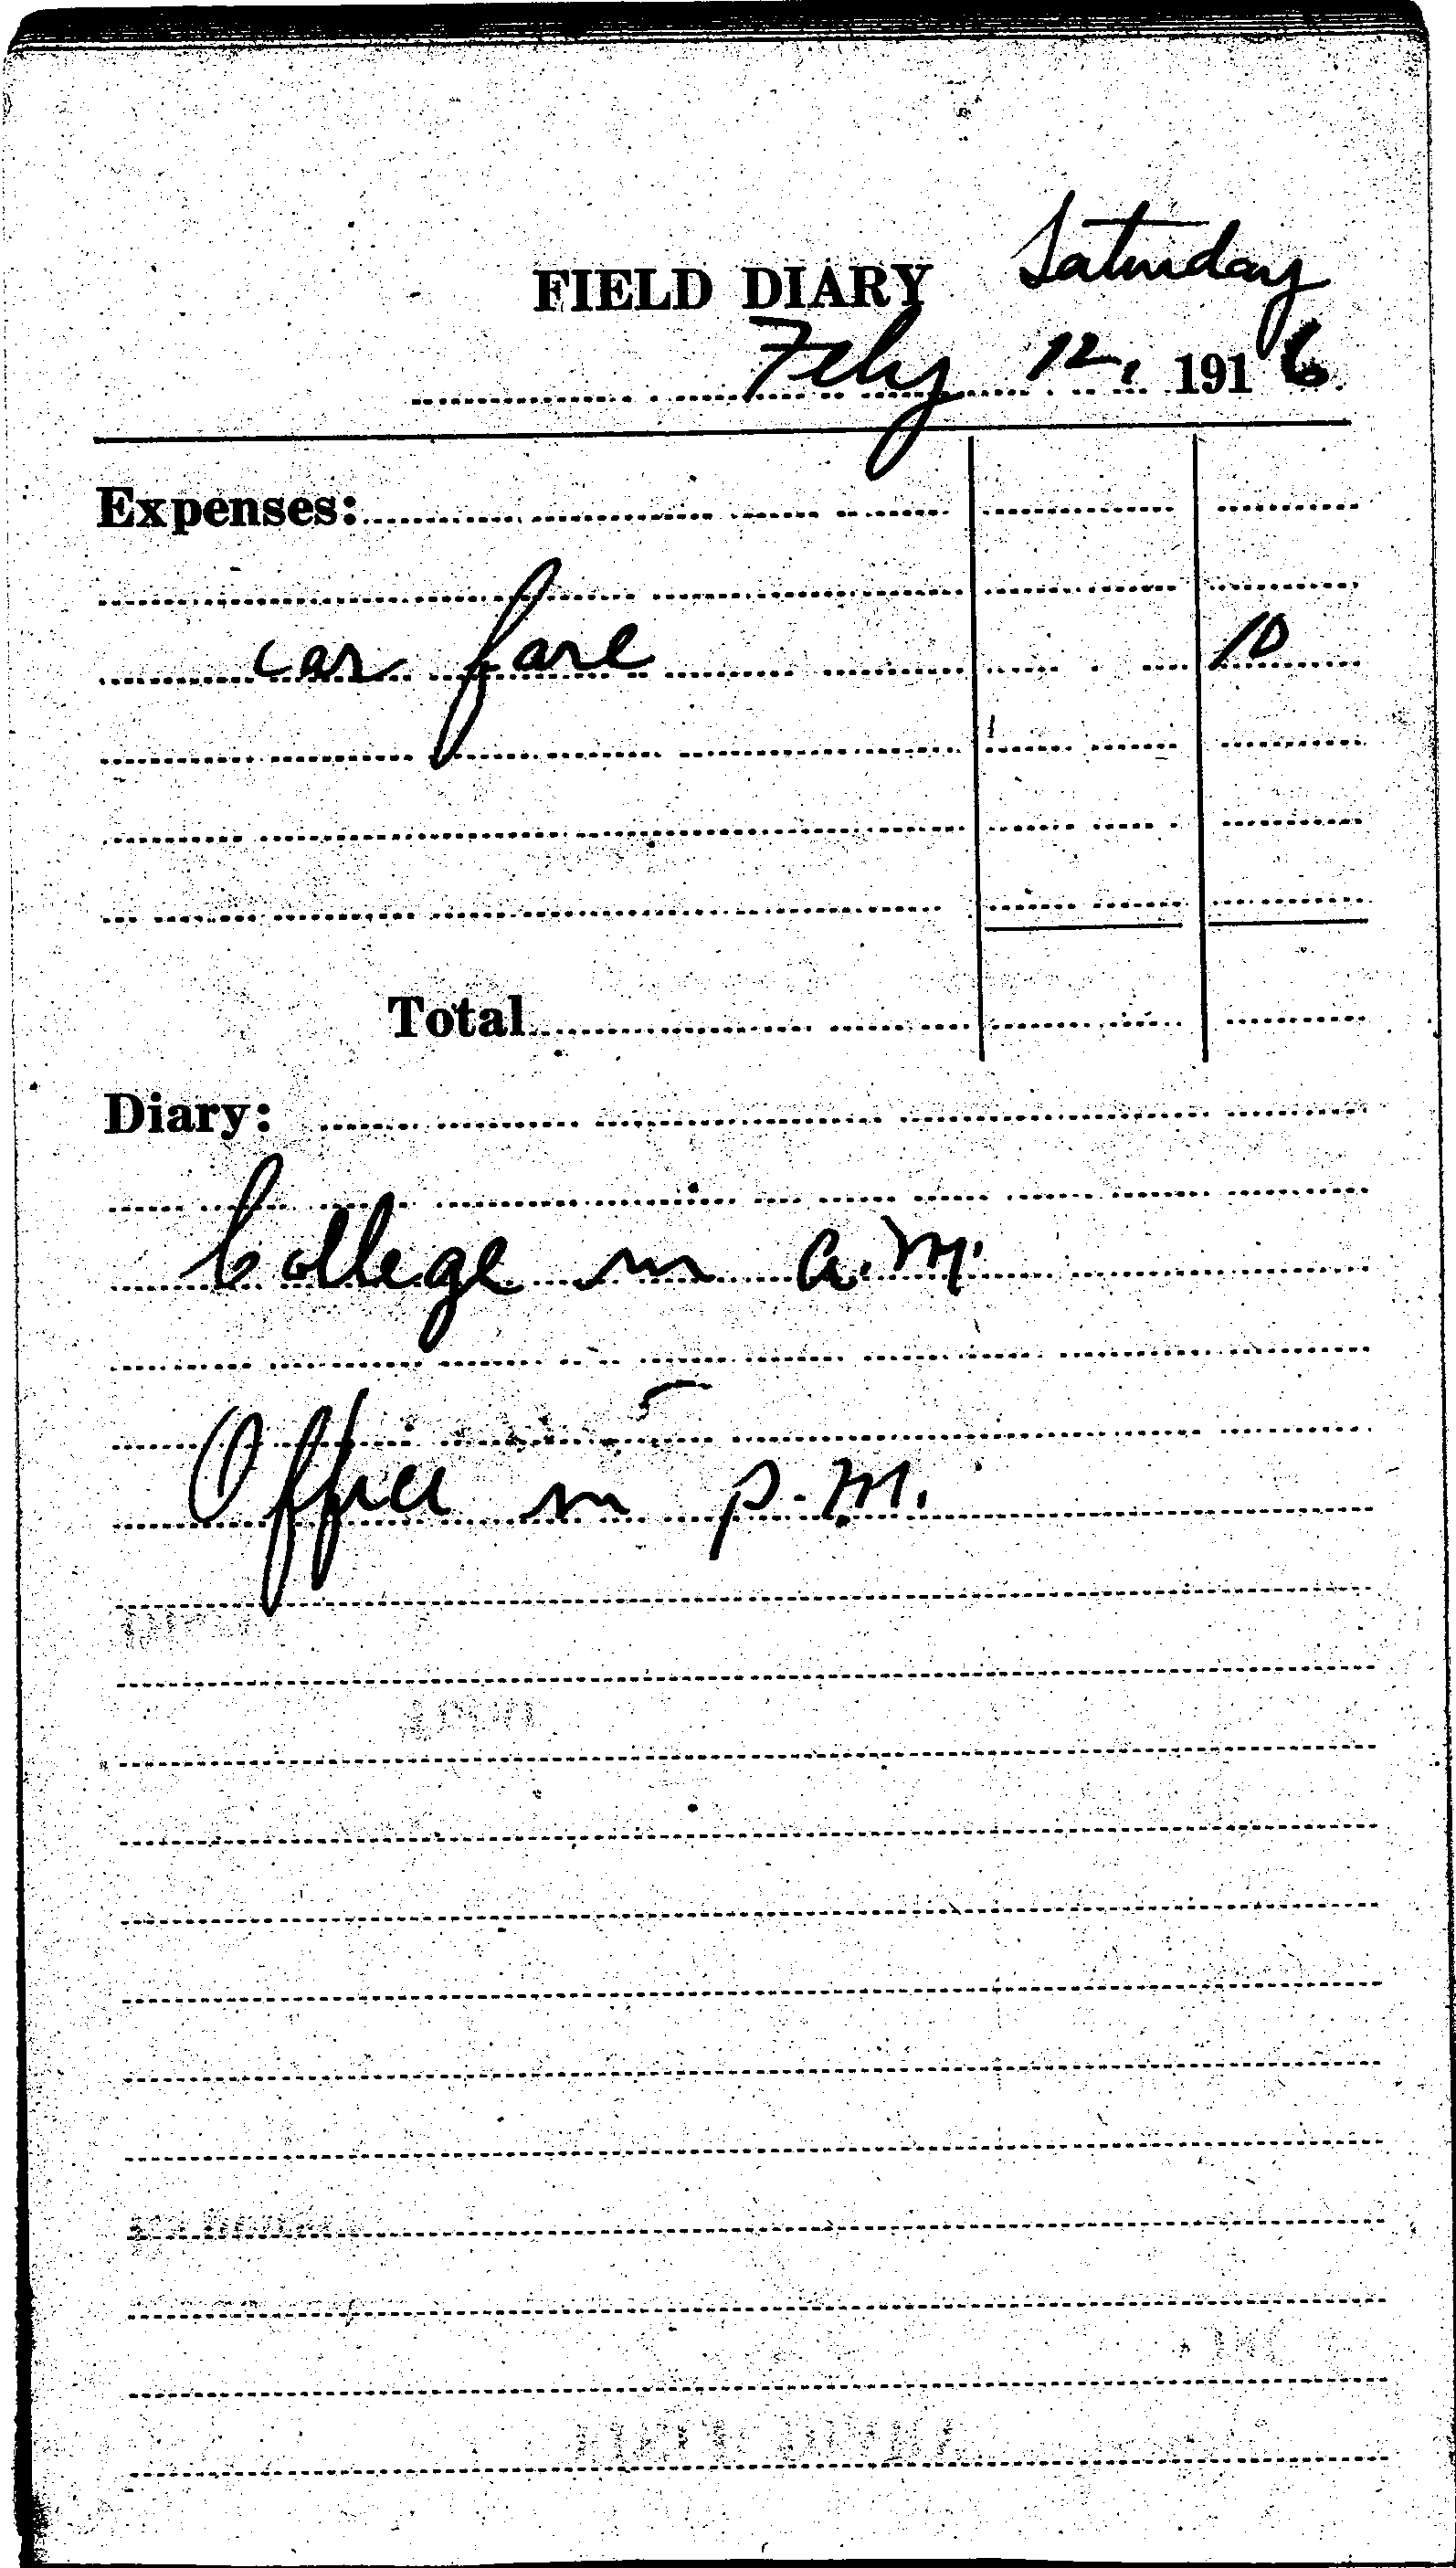 Saturday
FIELD DIARY
Feby 12, 1916
Expenses:
car fare 10
Total
Diary:
College in a.m.
Office in p.m.